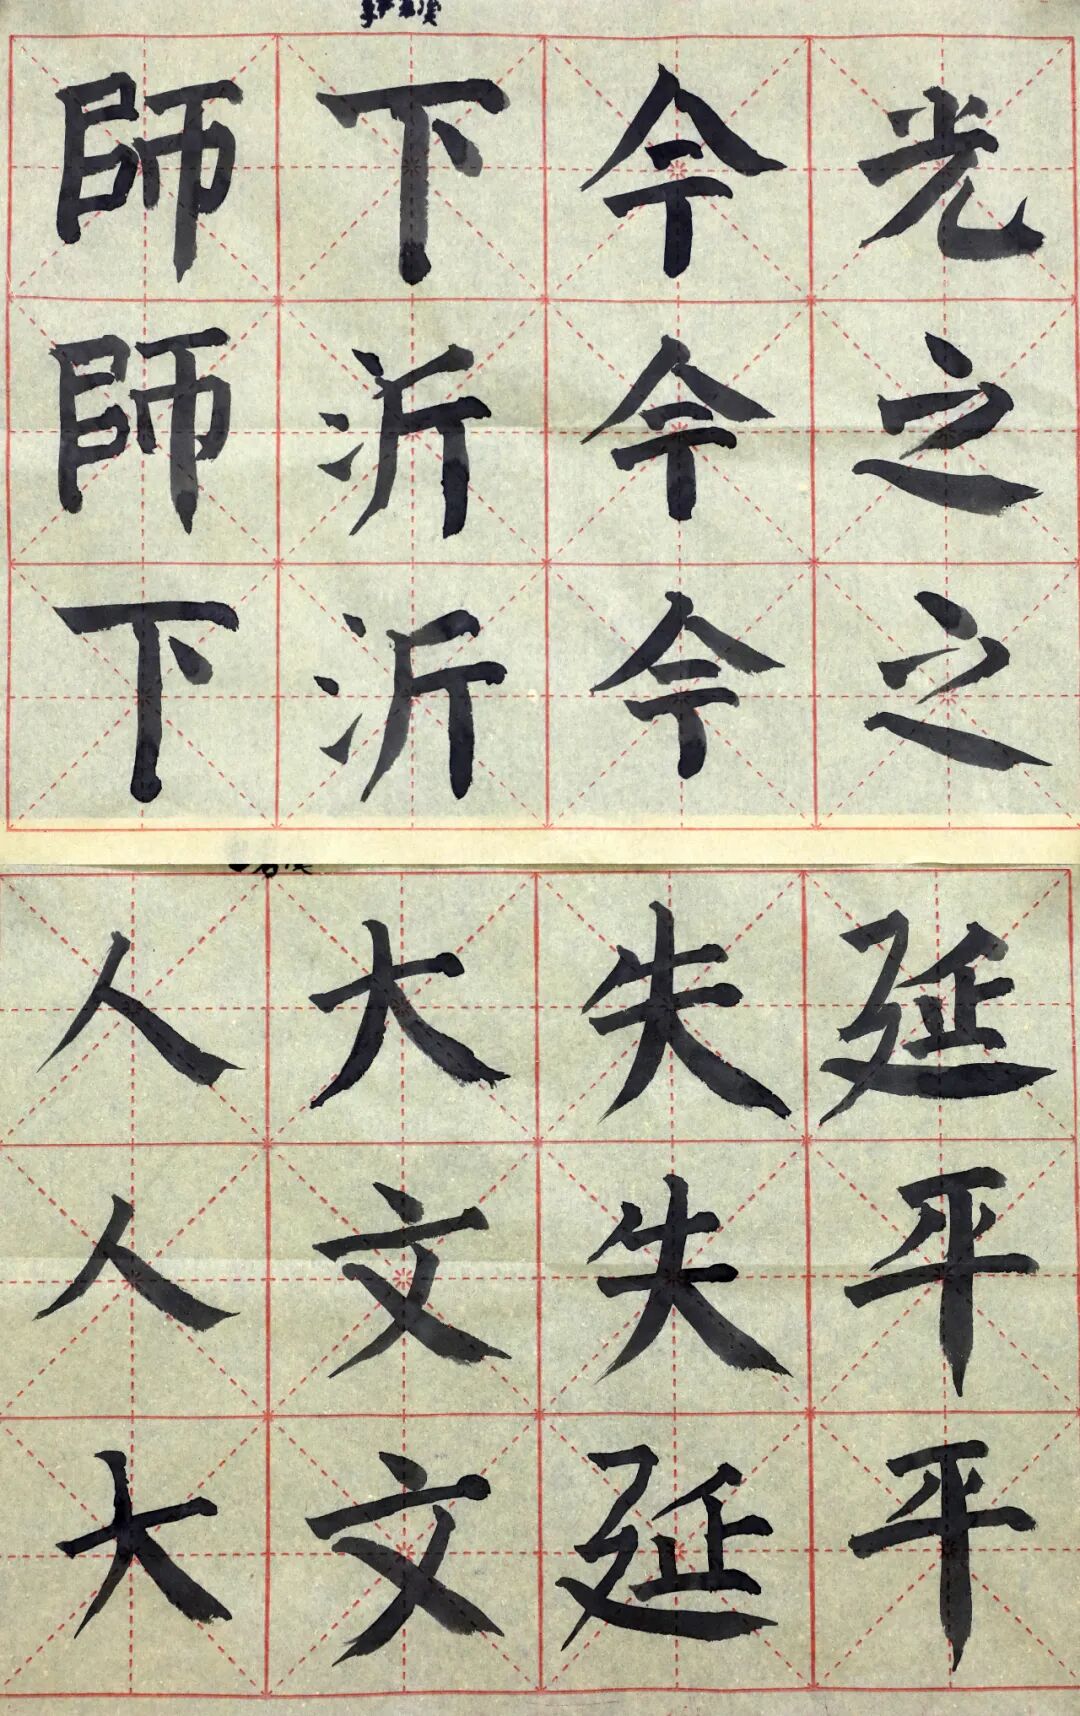 師師下
下沂沂
今今今
光之之
人人大
大文文
失失延
延平平